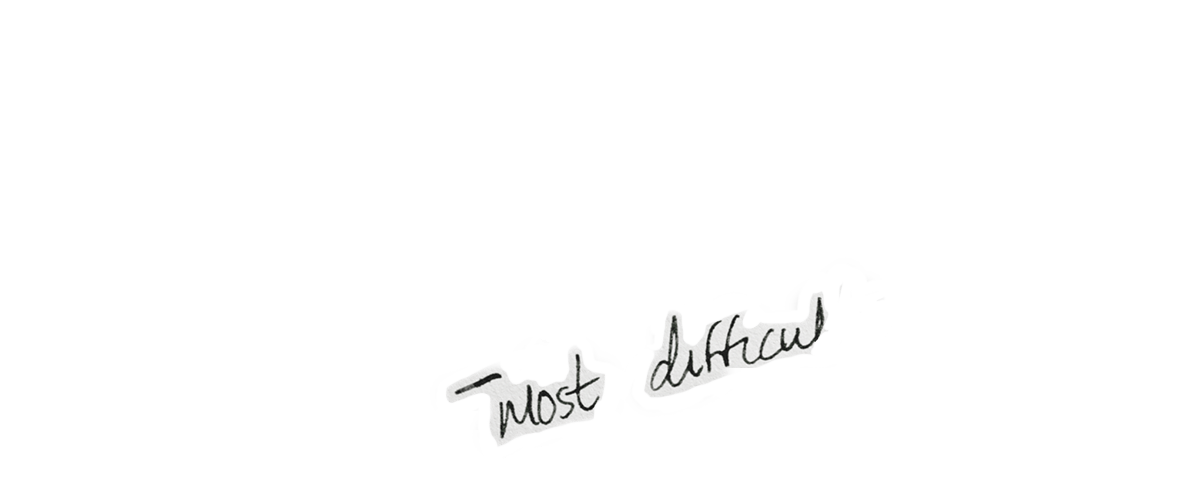 - Most difficul